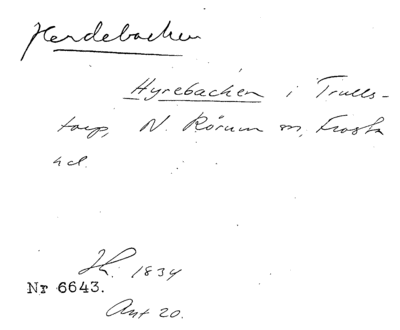 Herdebacken
Hyrebacken i Trulls-
torp, N. Rörum sn, Frosta
hd.
Jh. 1834
Nr 6643.
Ant 20.